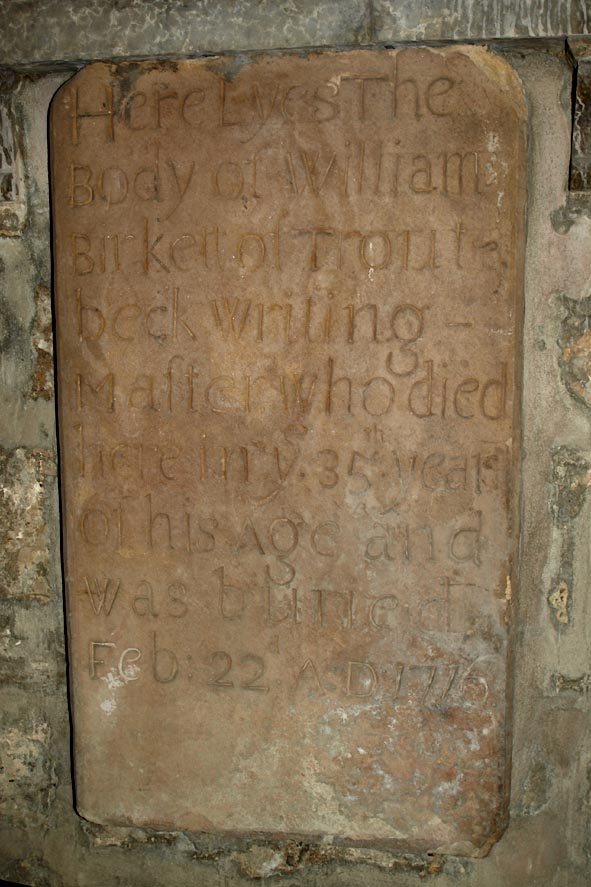 Here Lyes The
Body of William
Birkett of Trout-
beck Writing-
Maſter who died
here in yͤ 35ᵗʰ year
of his Age and
was buried
Feb: 22 A:D 1716